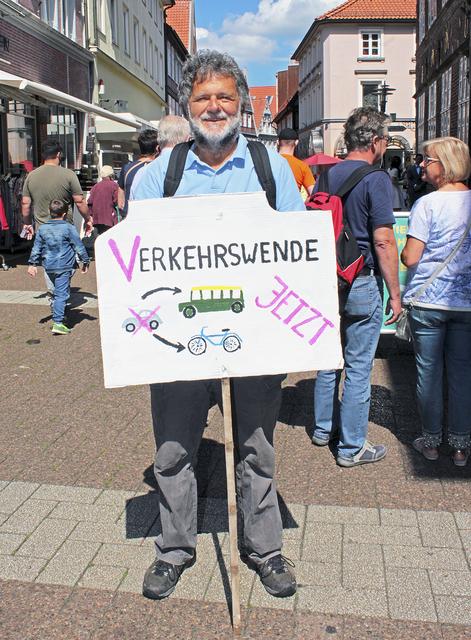 VERKEHRSWENDE
JETZT